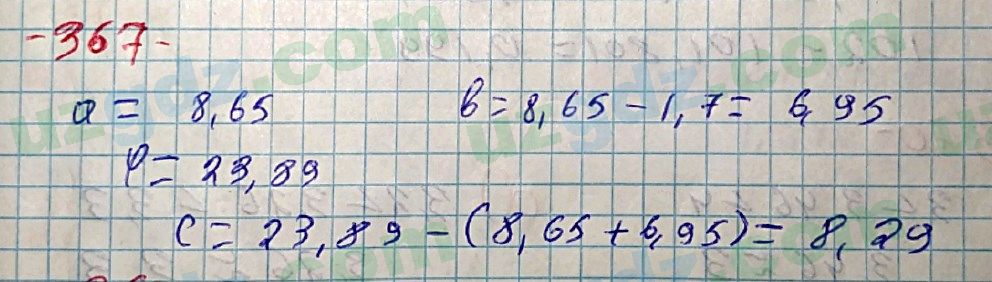 -367-
a = 8,65 b = 8,65 - 1,7 = 6,95
P = 23,89
c = 23,89 - (8,65 + 6,95) = 8,29
uzgdz.com
uzgdz.com
uzgdz.com
uzgdz.com